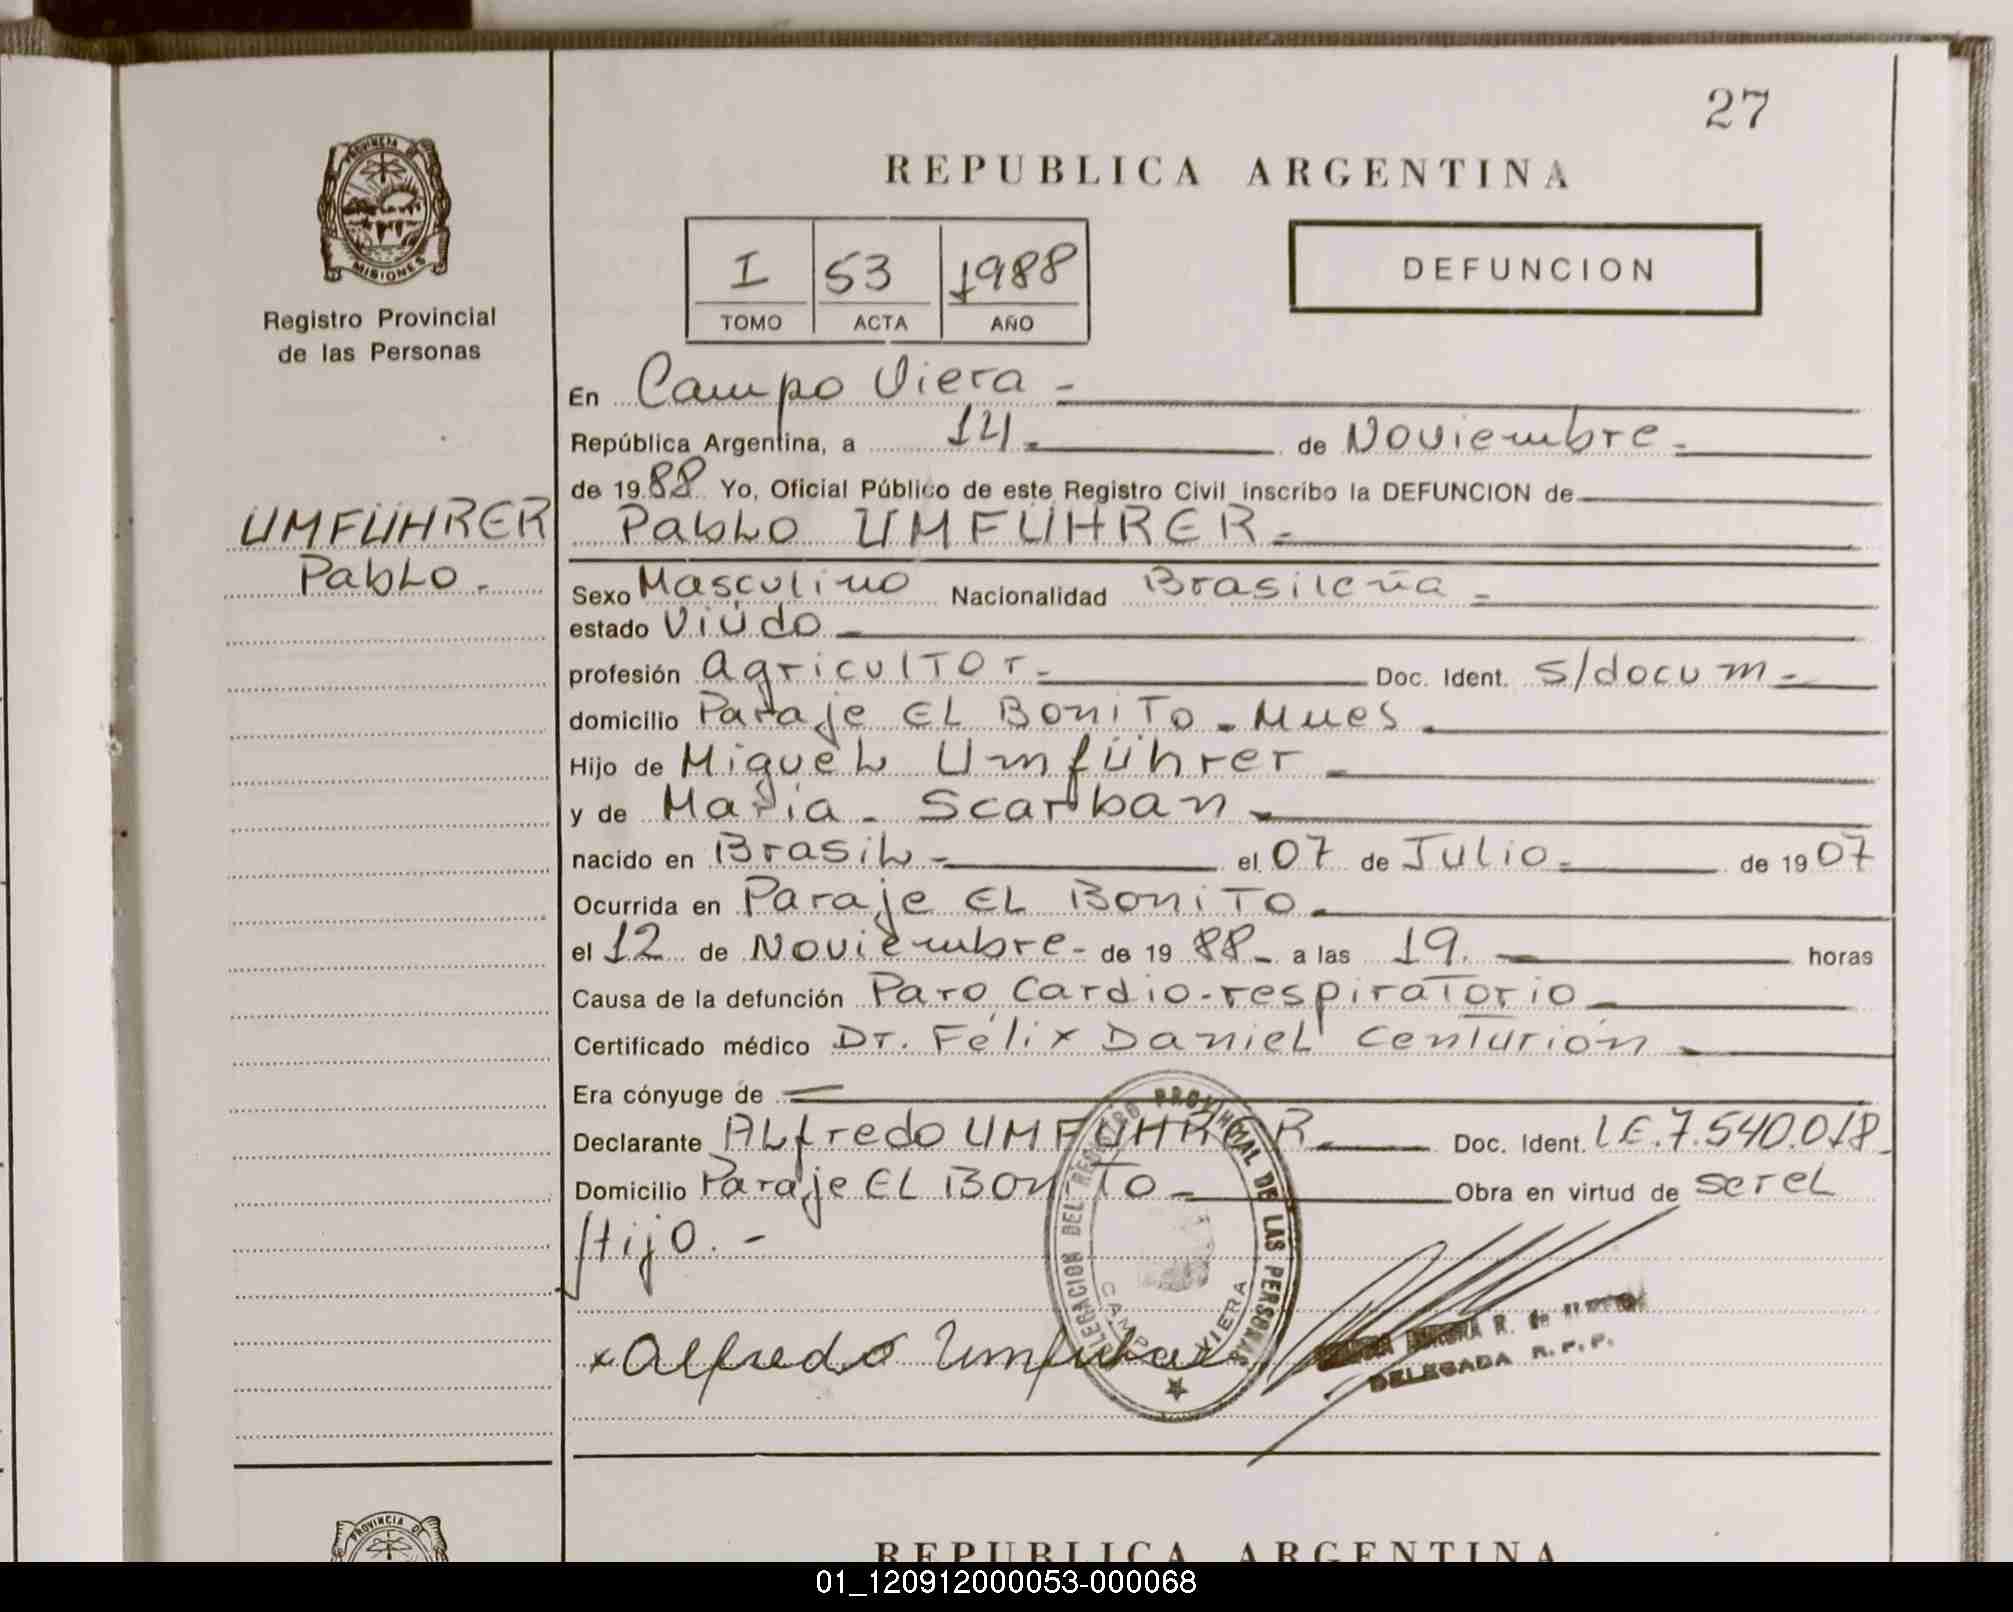 27
PROVINCIA DE
MISIONES
Registro Provincial
de las Personas
REPUBLICA ARGENTINA
I 53 1988
TOMO ACTA AÑO
DEFUNCION
UMFÜHRER
Pablo.-
En Campo Viera -
República Argentina, a 14.- de Noviembre.-
de 1988 Yo, Oficial Público de este Registro Civil inscribo la DEFUNCION de
Pablo UMFÜHRER.-
Sexo Masculino Nacionalidad Brasileña.-
estado Viudo -
profesión agricultor.- Doc. Ident. s/docum.-
domicilio Paraje EL Bonito - Mnes.
Hijo de Miguel Umführer -
y de Maria - Scarban -
nacido en Brasil - el 07 de Julio.- de 1907
Ocurrida en Paraje EL Bonito -
el 12 de Noviembre - de 1988 - a las 19. - horas
Causa de la defunción Paro Cardio-respiratorio -
Certificado médico Dr. Félix Daniel Centurión -
Era cónyuge de =
Declarante Alfredo UMFÜHRER.- Doc. Ident. L.E. 7.540.018-
Domicilio Paraje EL Bonito - Obra en virtud de ser el
Hijo.-
x Alfredo Umführer
DELEGACION DEL REGISTRO PROVINCIAL DE LAS PERSONAS
CAMPO VIERA
DELEGADA R.P.P.
PROVINCIA DE
REPUBLICA ARGENTINA
01_120912000053-000068